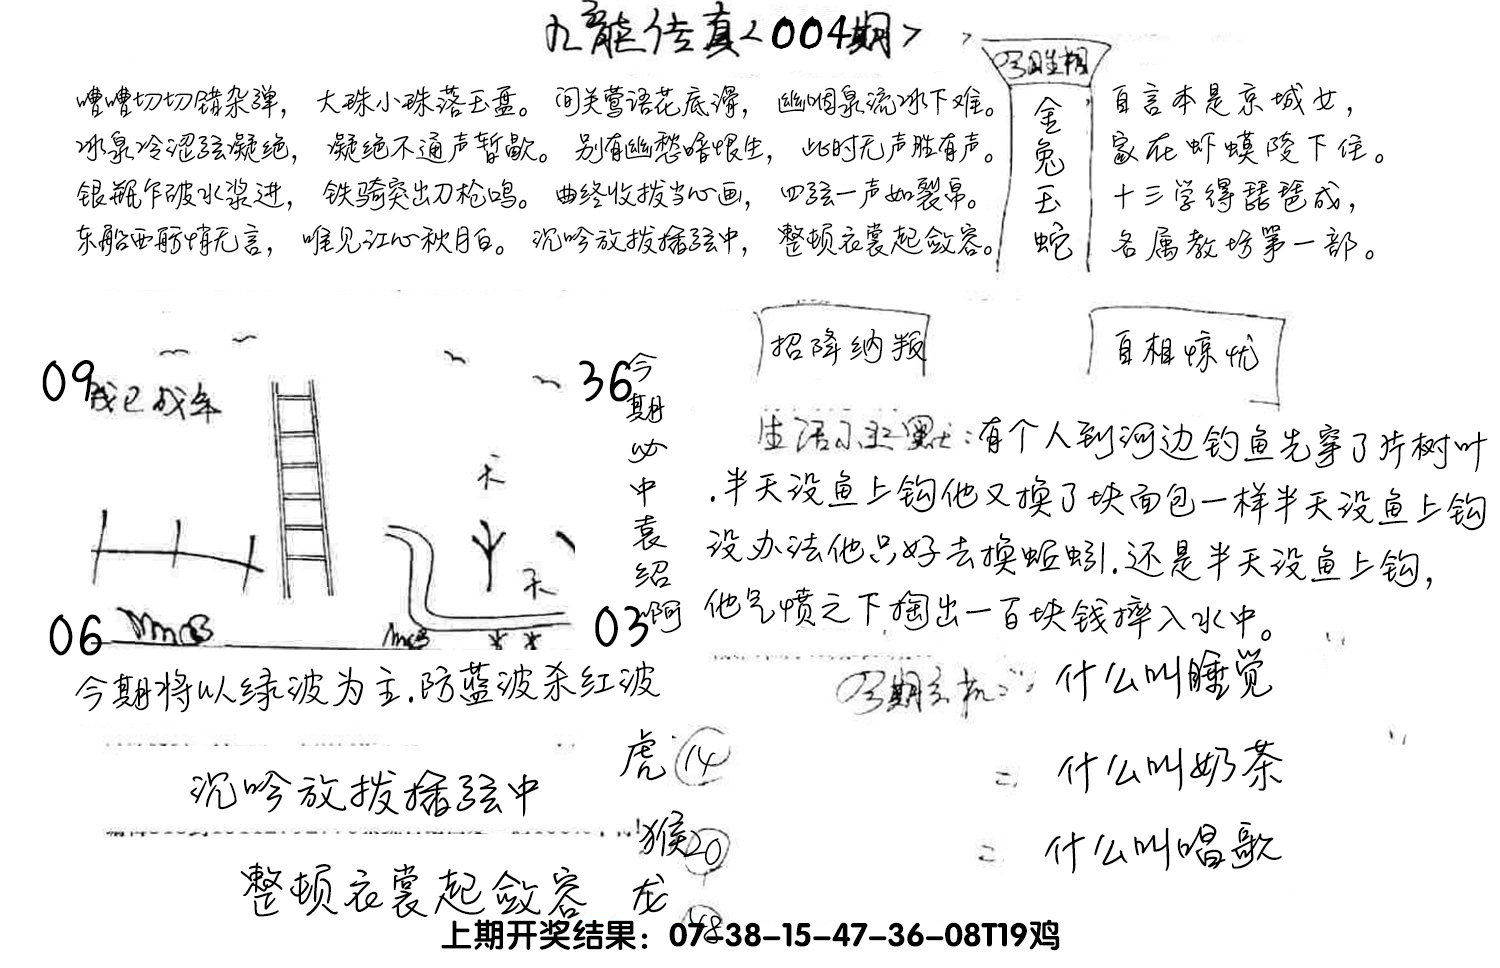 九龙传真<004期>
嘈嘈切切错杂弹，大珠小珠落玉盘。间关莺语花底滑，幽咽泉流冰下难。
冰泉冷涩弦凝绝，凝绝不通声暂歇。别有幽愁暗恨生，此时无声胜有声。
银瓶乍破水浆迸，铁骑突出刀枪鸣。曲终收拨当心画，四弦一声如裂帛。
东船西舫悄无言，唯见江心秋月白。沉吟放拨插弦中，整顿衣裳起敛容。
金兔玉蛇
自言本是京城女，
家在虾蟆陵下住。
十三学得琵琶成，
名属教坊第一部。
招降纳叛
自相惊忧
09
36
天
天
06
03
今期必中袁绍啊
生活小幽默:有个人到河边钓鱼先穿了片树叶
.半天没鱼上钩他又换了块面包一样半天没鱼上钩
没办法他只好去换蚯蚓.还是半天没鱼上钩,
他气愤之下掏出一百块钱摔入水中。
今期将以绿波为主.防蓝波杀红波
沉吟放拨插弦中
整顿衣裳起敛容
虎 14
猴 20
龙 48
今期玄机:
什么叫睡觉
= 什么叫奶茶
= 什么叫唱歌
上期开奖结果：07-38-15-47-36-08T19鸡